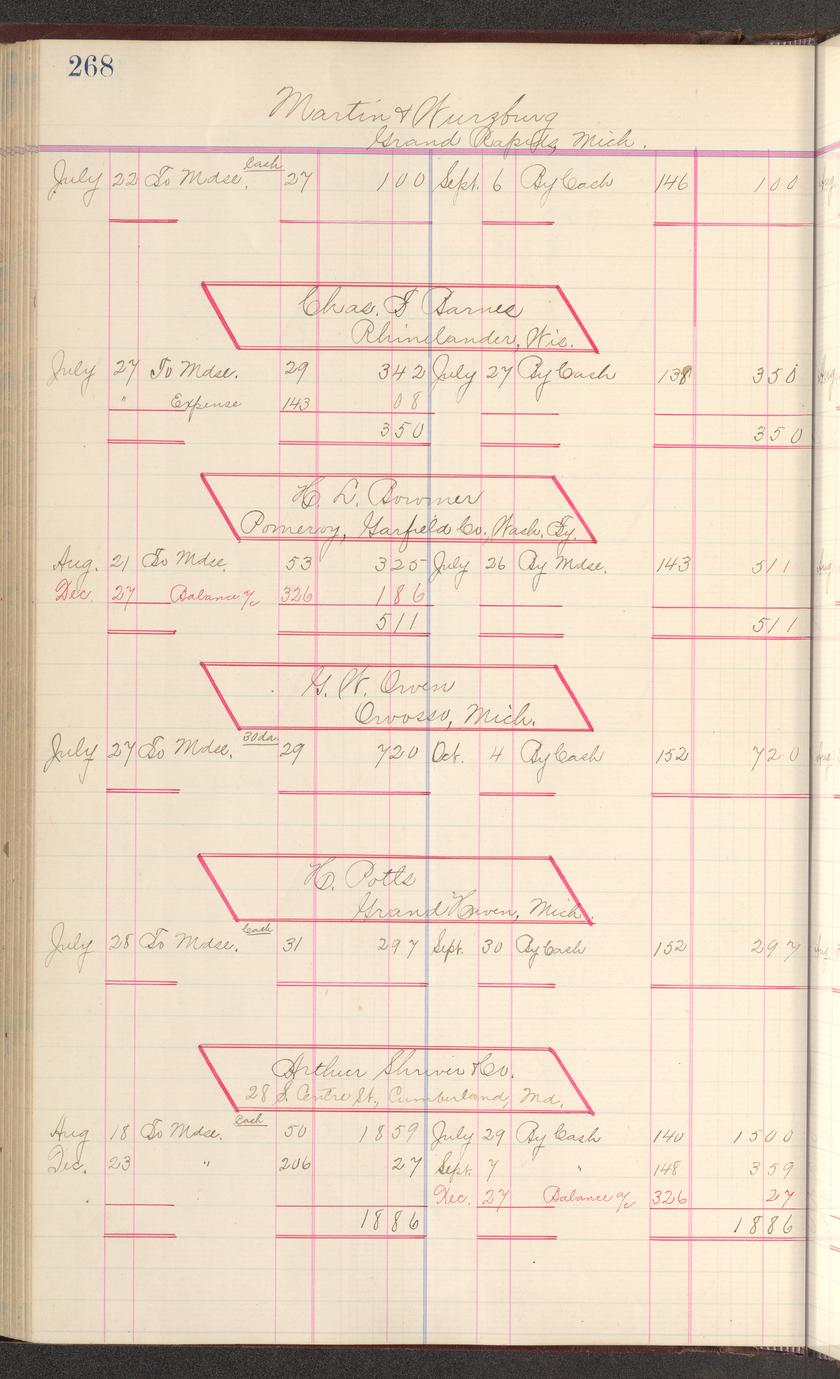 268
Martin & Wurzburg
Grand Rapids, Mich.
July 22 To Mdse. Cash 27 100 Sept. 6 By Cash 146 100
Chas. F Barnes
Rhinelander, Wis.
July 27 To Mdse. 29 342 July 27 By Cash 138 350
" Expense 143 08
350 350
H. L. Bowmer
Pomeroy, Garfield Co., Wash. Ty.
Aug. 21 To Mdse. 53 325 July 26 By Mdse. 143 511
Dec. 27 Balance a/c 326 186
511 511
G. W. Owen
Owosso, Mich.
July 27 To Mdse. 30da. 29 720 Oct. 4 By Cash 152 720
H. Potts
Grand Haven, Mich.
July 28 To Mdse. Cash 31 297 Sept. 30 By Cash 152 297
Arthur Shriver & Co.
28 S. Centre St., Cumberland, Md.
Aug 18 To Mdse. Cash 50 1859 July 29 By Cash 140 1500
Dec. 23 " 206 27 Sept. 7 " 148 359
Dec. 27 Balance a/c 326 27
1886 1886